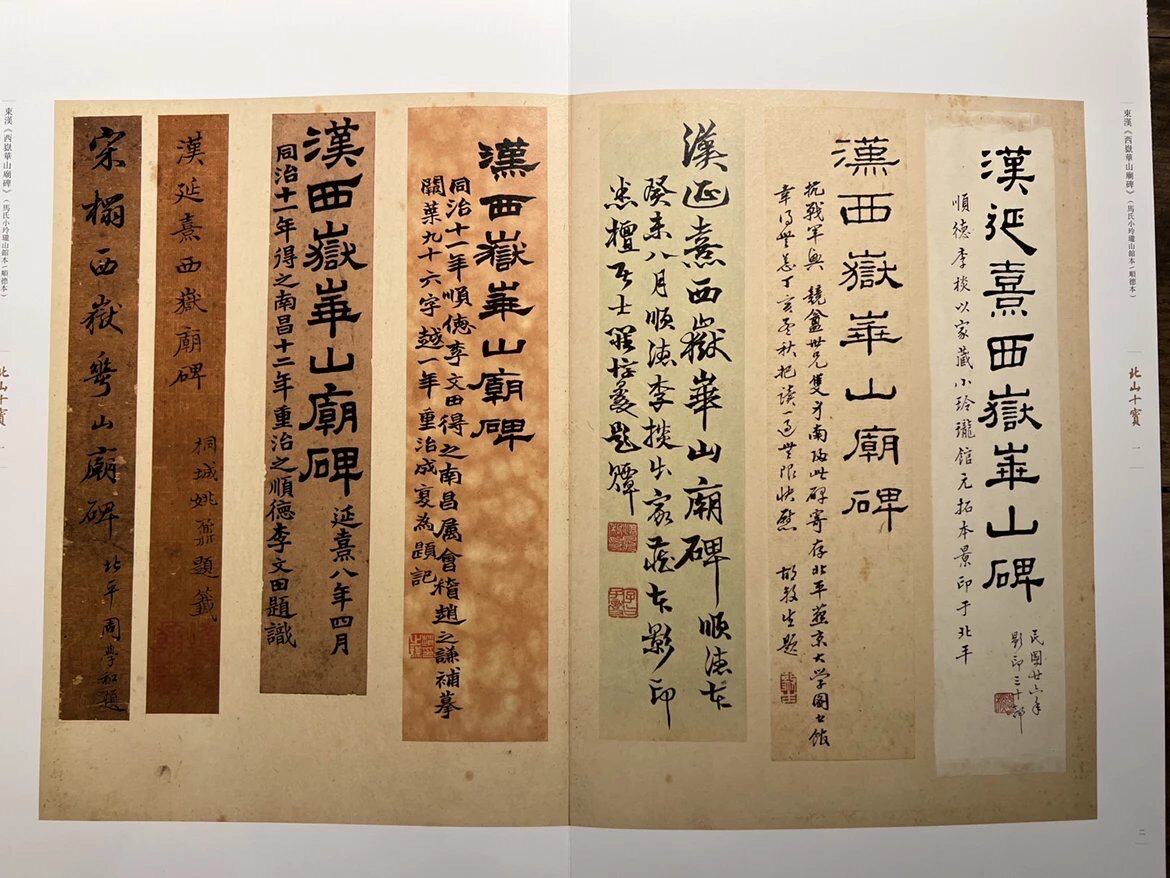 東漢《西嶽華山廟碑》（馬氏小玲瓏山館本/順德本）
北山十寳
一
二
漢延熹西嶽華山碑
順德李棪以家藏小玲瓏館元拓本景印于北平
民國廿六年
影印三十部
漢西嶽華山廟碑
抗戰軍興 競盦世兄隻身南 此碑寄存北平燕京大学圖書館
幸得無恙丁亥孟秋把讀一過無限快慰
漢延熹西嶽華山廟碑 順德本
癸未八月順德李棪出家藏本影印
漢西嶽華山廟碑
同治十一年順德李文田得之南昌属會稽趙之謙補摹
闕葉九十六字越一年重治成褱為題記
漢西嶽華山廟碑 延熹八年四月
同治十一年得之南昌十二年重治之順德李文田題識
漢延熹西嶽廟碑
桐城姚鼐題籤
宋榻西嶽華山廟碑 北平周學和題
東漢《西嶽華山廟碑》（馬氏小玲瓏山館本/順德本）
北山十寳
一